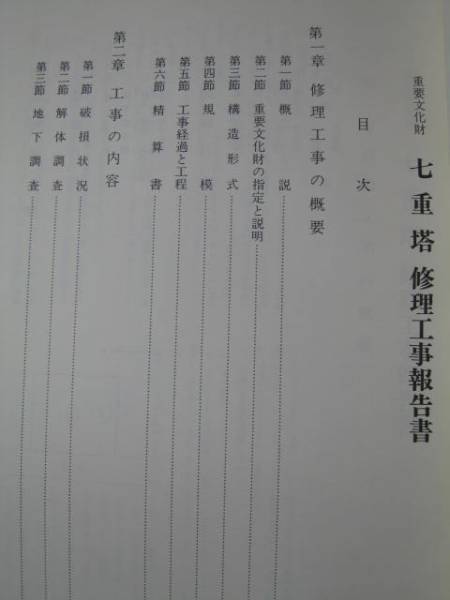 重要文化財 七重塔 修理工事報告書
目次
第一章 修理工事の概要
第一節 概説
第二節 重要文化財の指定と説明
第三節 構造形式
第四節 規模
第五節 工事経過と工程
第六節 精算書
第二章 工事の内容
第一節 破損状況
第二節 解体調査
第三節 地下調査